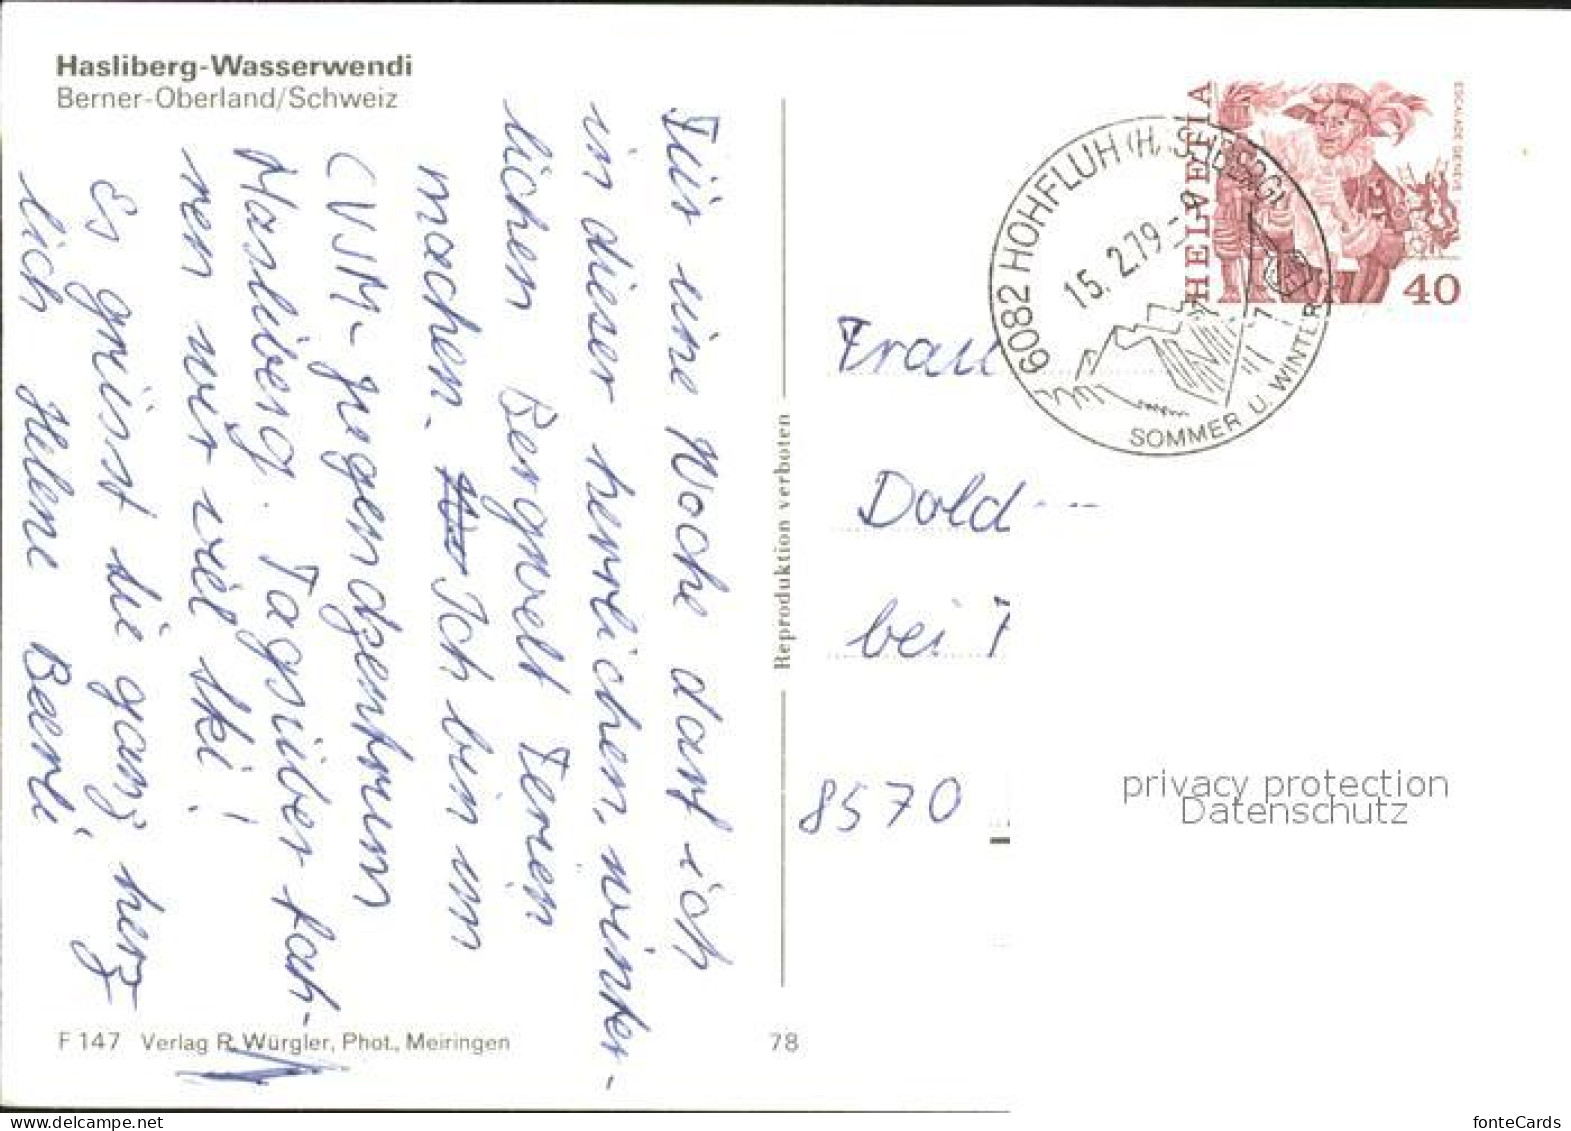 Hasliberg-Wasserwendi
Berner-Oberland/Schweiz
Für eine Woche darf ich
in dieser herrlichen, winter-
lichen Bergwelt Ferien
machen. Ich bin im
CVJM-Jugendzentrum
Hasliberg. Tagsüber fah-
ren wir viel Ski!
Es grüsst die ganz herz
lich Helene Beerli
F 147 Verlag R. Würgler, Phot., Meiringen
78
Reproduktion verboten
HELVETIA
ESCALADE GENEVE
40
6082 HOHFLUH (HASLIBERG)
15. 2.79-9
SOMMER U. WINTER
Frau
Dold
bei
8570
privacy protection
Datenschutz
fonteCards